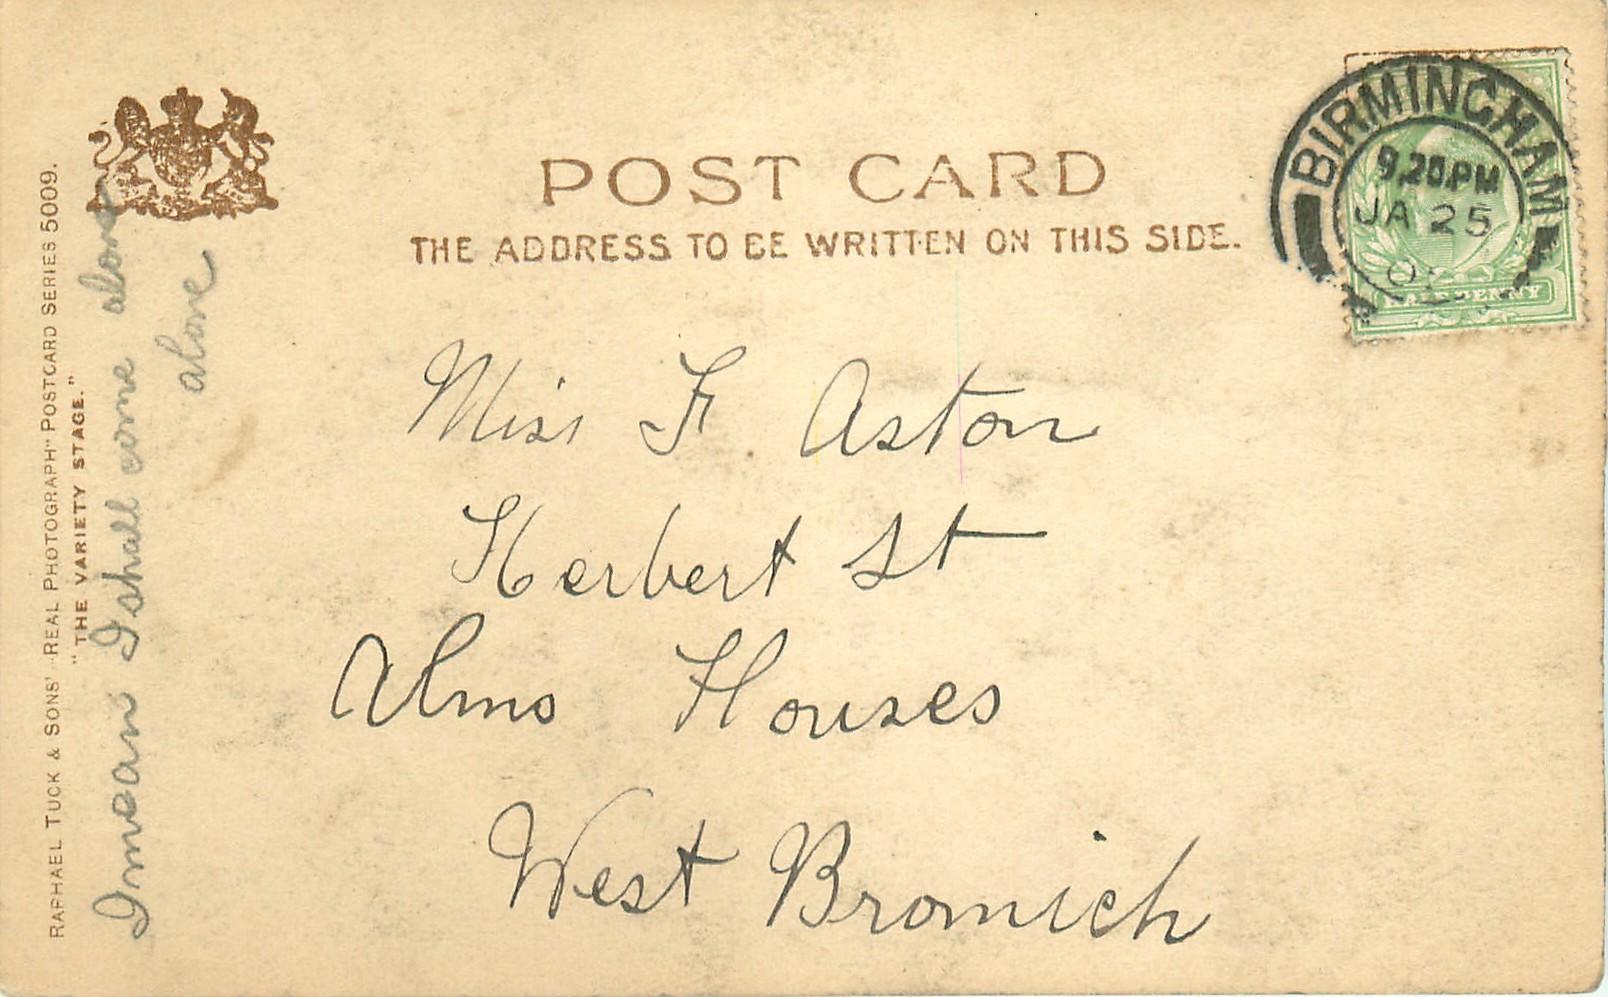 POST CARD
THE ADDRESS TO BE WRITTEN ON THIS SIDE.
BIRMINGHAM
9.20PM
JA 25
HALFPENNY
Miss F Aston
Herbert St
Alms Houses
West Bromich
RAPHAEL TUCK & SONS' "REAL PHOTOGRAPH" POSTCARD SERIES 5009.
"THE VARIETY STAGE."
I mean I shall come alone
alone